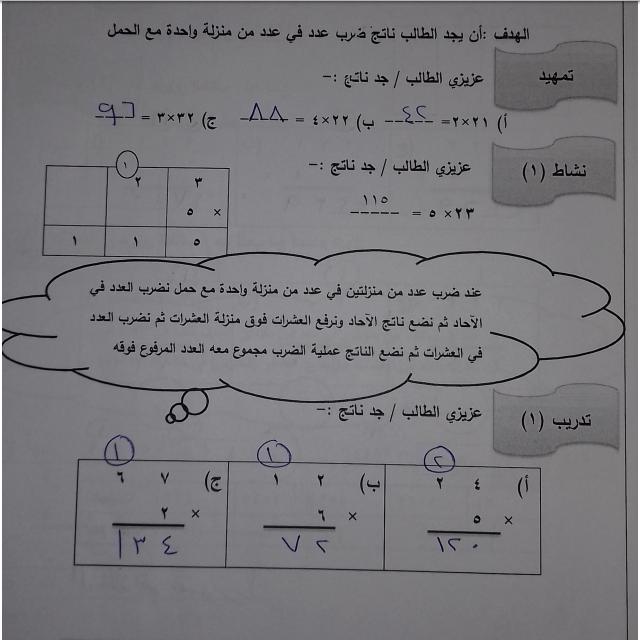 الهدف :أن يجد الطالب ناتج ضرب عدد في عدد من منزلة واحدة مع الحمل
تمهيد
عزيزي الطالب / جد ناتج :-
أ) ٢١×٢= ٤٢ ب) ٢٢×٤ = ٨٨ ج) ٣٢×٣ = ٩٦
نشاط (١)
عزيزي الطالب / جد ناتج :-
٢٣× ٥ = ١١٥
١
٢ ٣
× ٥
١ ١ ٥
عند ضرب عدد من منزلتين في عدد من منزلة واحدة مع حمل نضرب العدد في
الآحاد ثم نضع ناتج الآحاد ونرفع العشرات فوق منزلة العشرات ثم نضرب العدد
في العشرات ثم نضع الناتج عملية الضرب مجموع معه العدد المرفوع فوقه
تدريب (١)
عزيزي الطالب / جد ناتج :-
٢
أ) ٢ ٤
× ٥
١٢٠
١
ب) ١ ٢
× ٦
٧٢
١
ج) ٦ ٧
× ٢
١٣٤